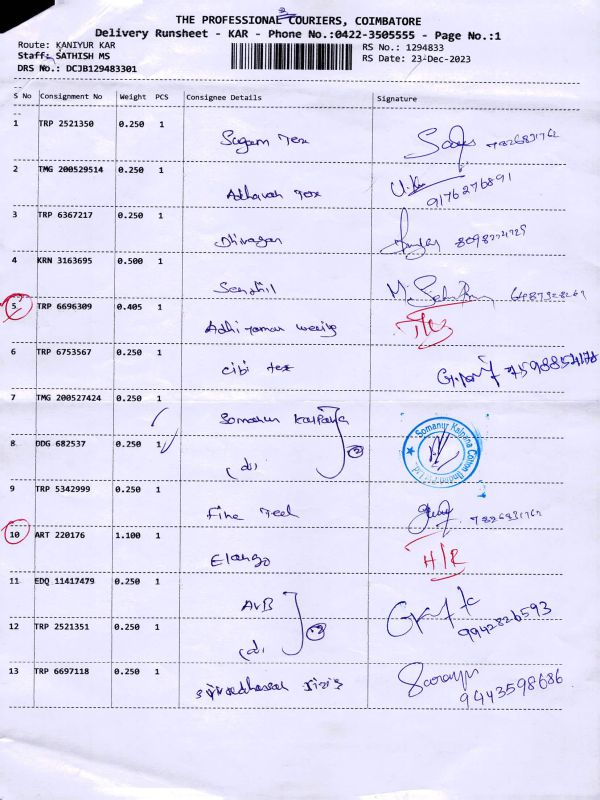 THE PROFESSIONAL COURIERS, COIMBATORE
Delivery Runsheet - KAR - Phone No.:0422-3505555 - Page No.:1
Route: KANIYUR KAR
RS No.: 1294833
Staff: SATHISH MS
RS Date: 23-Dec-2023
DRS No.: DCJB129483301
S No Consignment No Weight PCS Consignee Details Signature
1 TRP 2521350 0.250 1
Sugam Tex
2 TMG 200529514 0.250 1
Adhavan Tex
9176276891
3 TRP 6367217 0.250 1
4 KRN 3163695 0.500 1
Senthil
5 TRP 6696309 0.405 1
Adhi raman
6 TRP 6753567 0.250 1
cibi tex
7 TMG 200527424 0.250 1
Somanur Kalpana
Somanur Kalpana Cotton
8 DDG 682537 0.250 1
2
9 TRP 5342999 0.250 1
Fine
10 ART 220176 1.100 1
Elango
11 EDQ 11417479 0.250 1
AVB
9942826593
12 TRP 2521351 0.250 1
2
13 TRP 6697118 0.250 1
9443598686